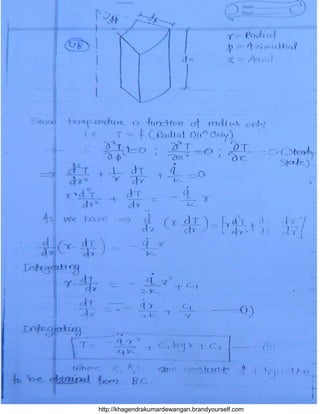 Date
Page
48
dr
dz
r = Radial
φ = Azimuthal
z = Axial
Since temperature is function of radius only
i.e. T = f (Radial Dirⁿ Only)
∂²T/∂φ² = 0 ; ∂²T/∂z² = 0 ; ∂T/∂τ = 0 (Steady state)
⇒ d²T/dr² + 1/r dT/dr + q̇/k = 0
r d²T/dr² + dT/dr = - q̇/k r
As we have ⇒ d/dr (r. dT/dr) = [r d²T/dr² +
d/dr (r. dT/dr) = - q̇/k r
Integrating
r dT/dr = - q̇/2k r² + C₁
dT/dr = - q̇r/2k + C₁/r —(1)
Integrating
T = - q̇r²/4k + C₁ log r + C₂
where C₁ & are constant of
to be obtained from BC.
http://khagendrakumardewangan.brandyourself.com